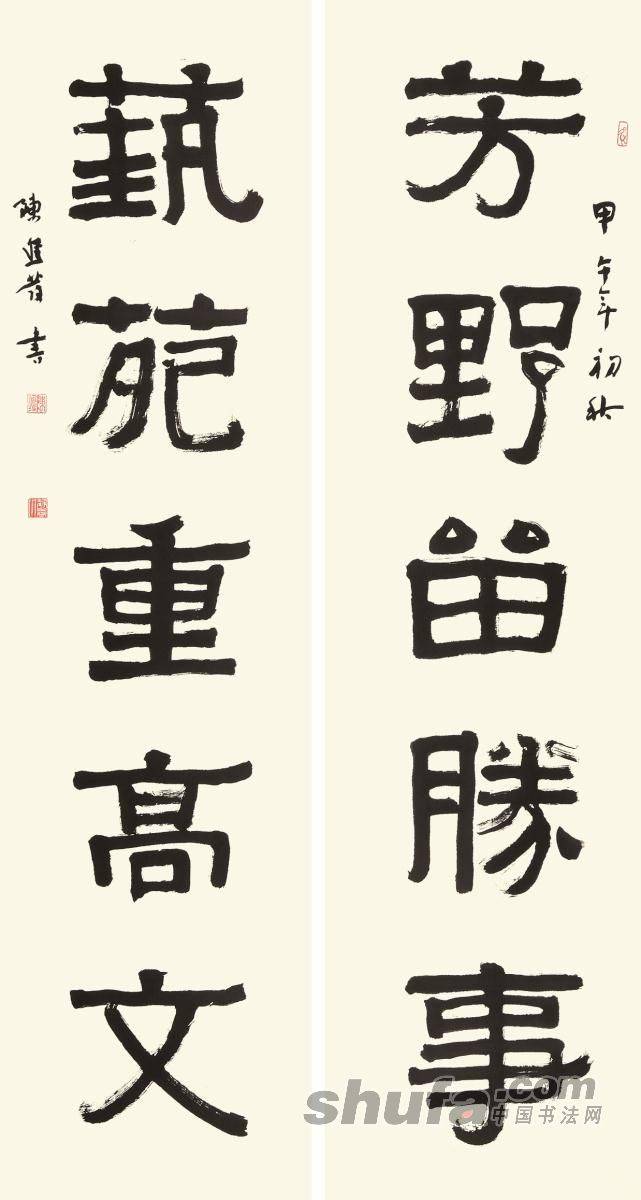 甲午年初秋
芳野留勝事
藝苑重高文
陳進 書
shufa.com
中国书法网